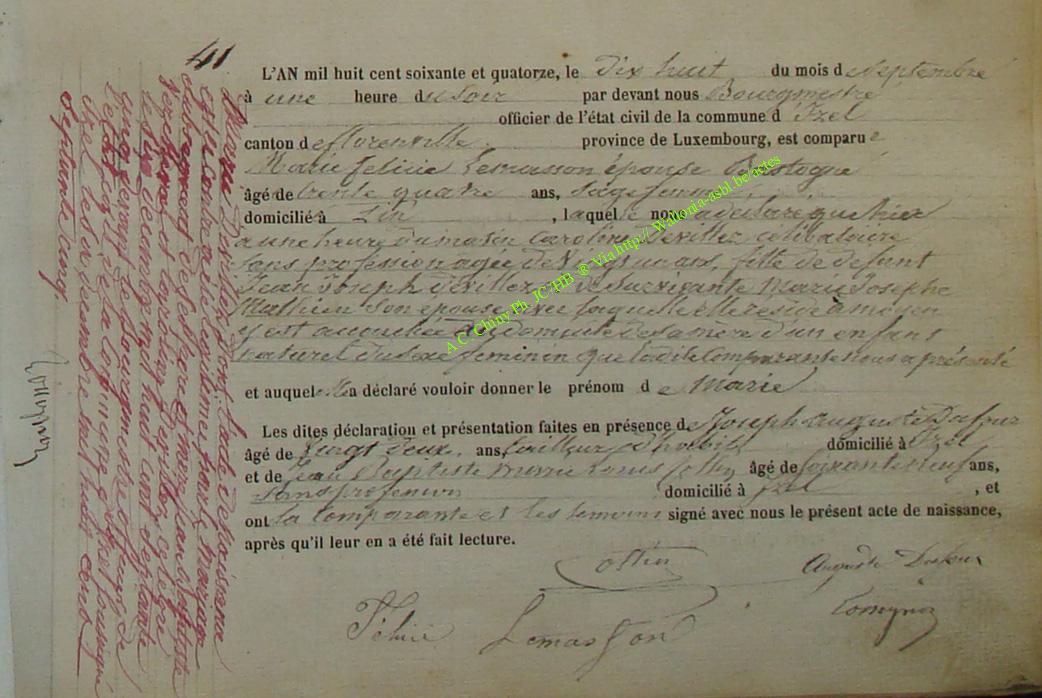 41
L'AN mil huit cent soixante et quatorze, le Dix huit du mois de Septembre
à une heure du soir par devant nous Bourgmestre
officier de l'état civil de la commune d'Izel
canton de florenville province de Luxembourg, est comparue
Marie felicie Lemasson épouse Bastogne
âgé de trente quatre ans, sage femme,
domicilié à , laquelle nous a déclaré que hier
a une heure du matin Caroline Devillez, célibataire
sans profession agée de ans, fille de defunt
Jean Joseph Devillez, et de survivante Marie Josephe
Mathieu son épouse avec laquelle elle réside à moyen
y est accouchée au domicile de sa mère d'un enfant
naturel du sexe feminin que ladite Comparante nous a présenté
et auquel elle a déclaré vouloir donner le prénom de Marie
Les dites déclaration et présentation faites en présence de Joseph auguste Dufour
âgé de vingt Deux ans, tailleur d'habits domicilié à Izel
et de Jean Baptiste Marie Louis Collin âgé de soixante neuf ans,
sans profession domicilié à Izel , et
ont la Comparante et les temoins signé avec nous le présent acte de naissance,
après qu'il leur en a été fait lecture.
Collin Auguste Dufour
Félicie Lemasson
A C Chiny Ph JC HB ® Via http://Wallonia-asbl.be/actes
Marie Devillez dont l'acte de naissance
est ci contre a été légitimée par le mariage
subséquent de ses père et mère, Jean Baptiste
et Caroline Devillez célébré
à Izel le vingt huit août dernier
devant le bourgmestre officier de
l'état civil de la commune
Izel, le six novembre mil huit cent
septante cinq.